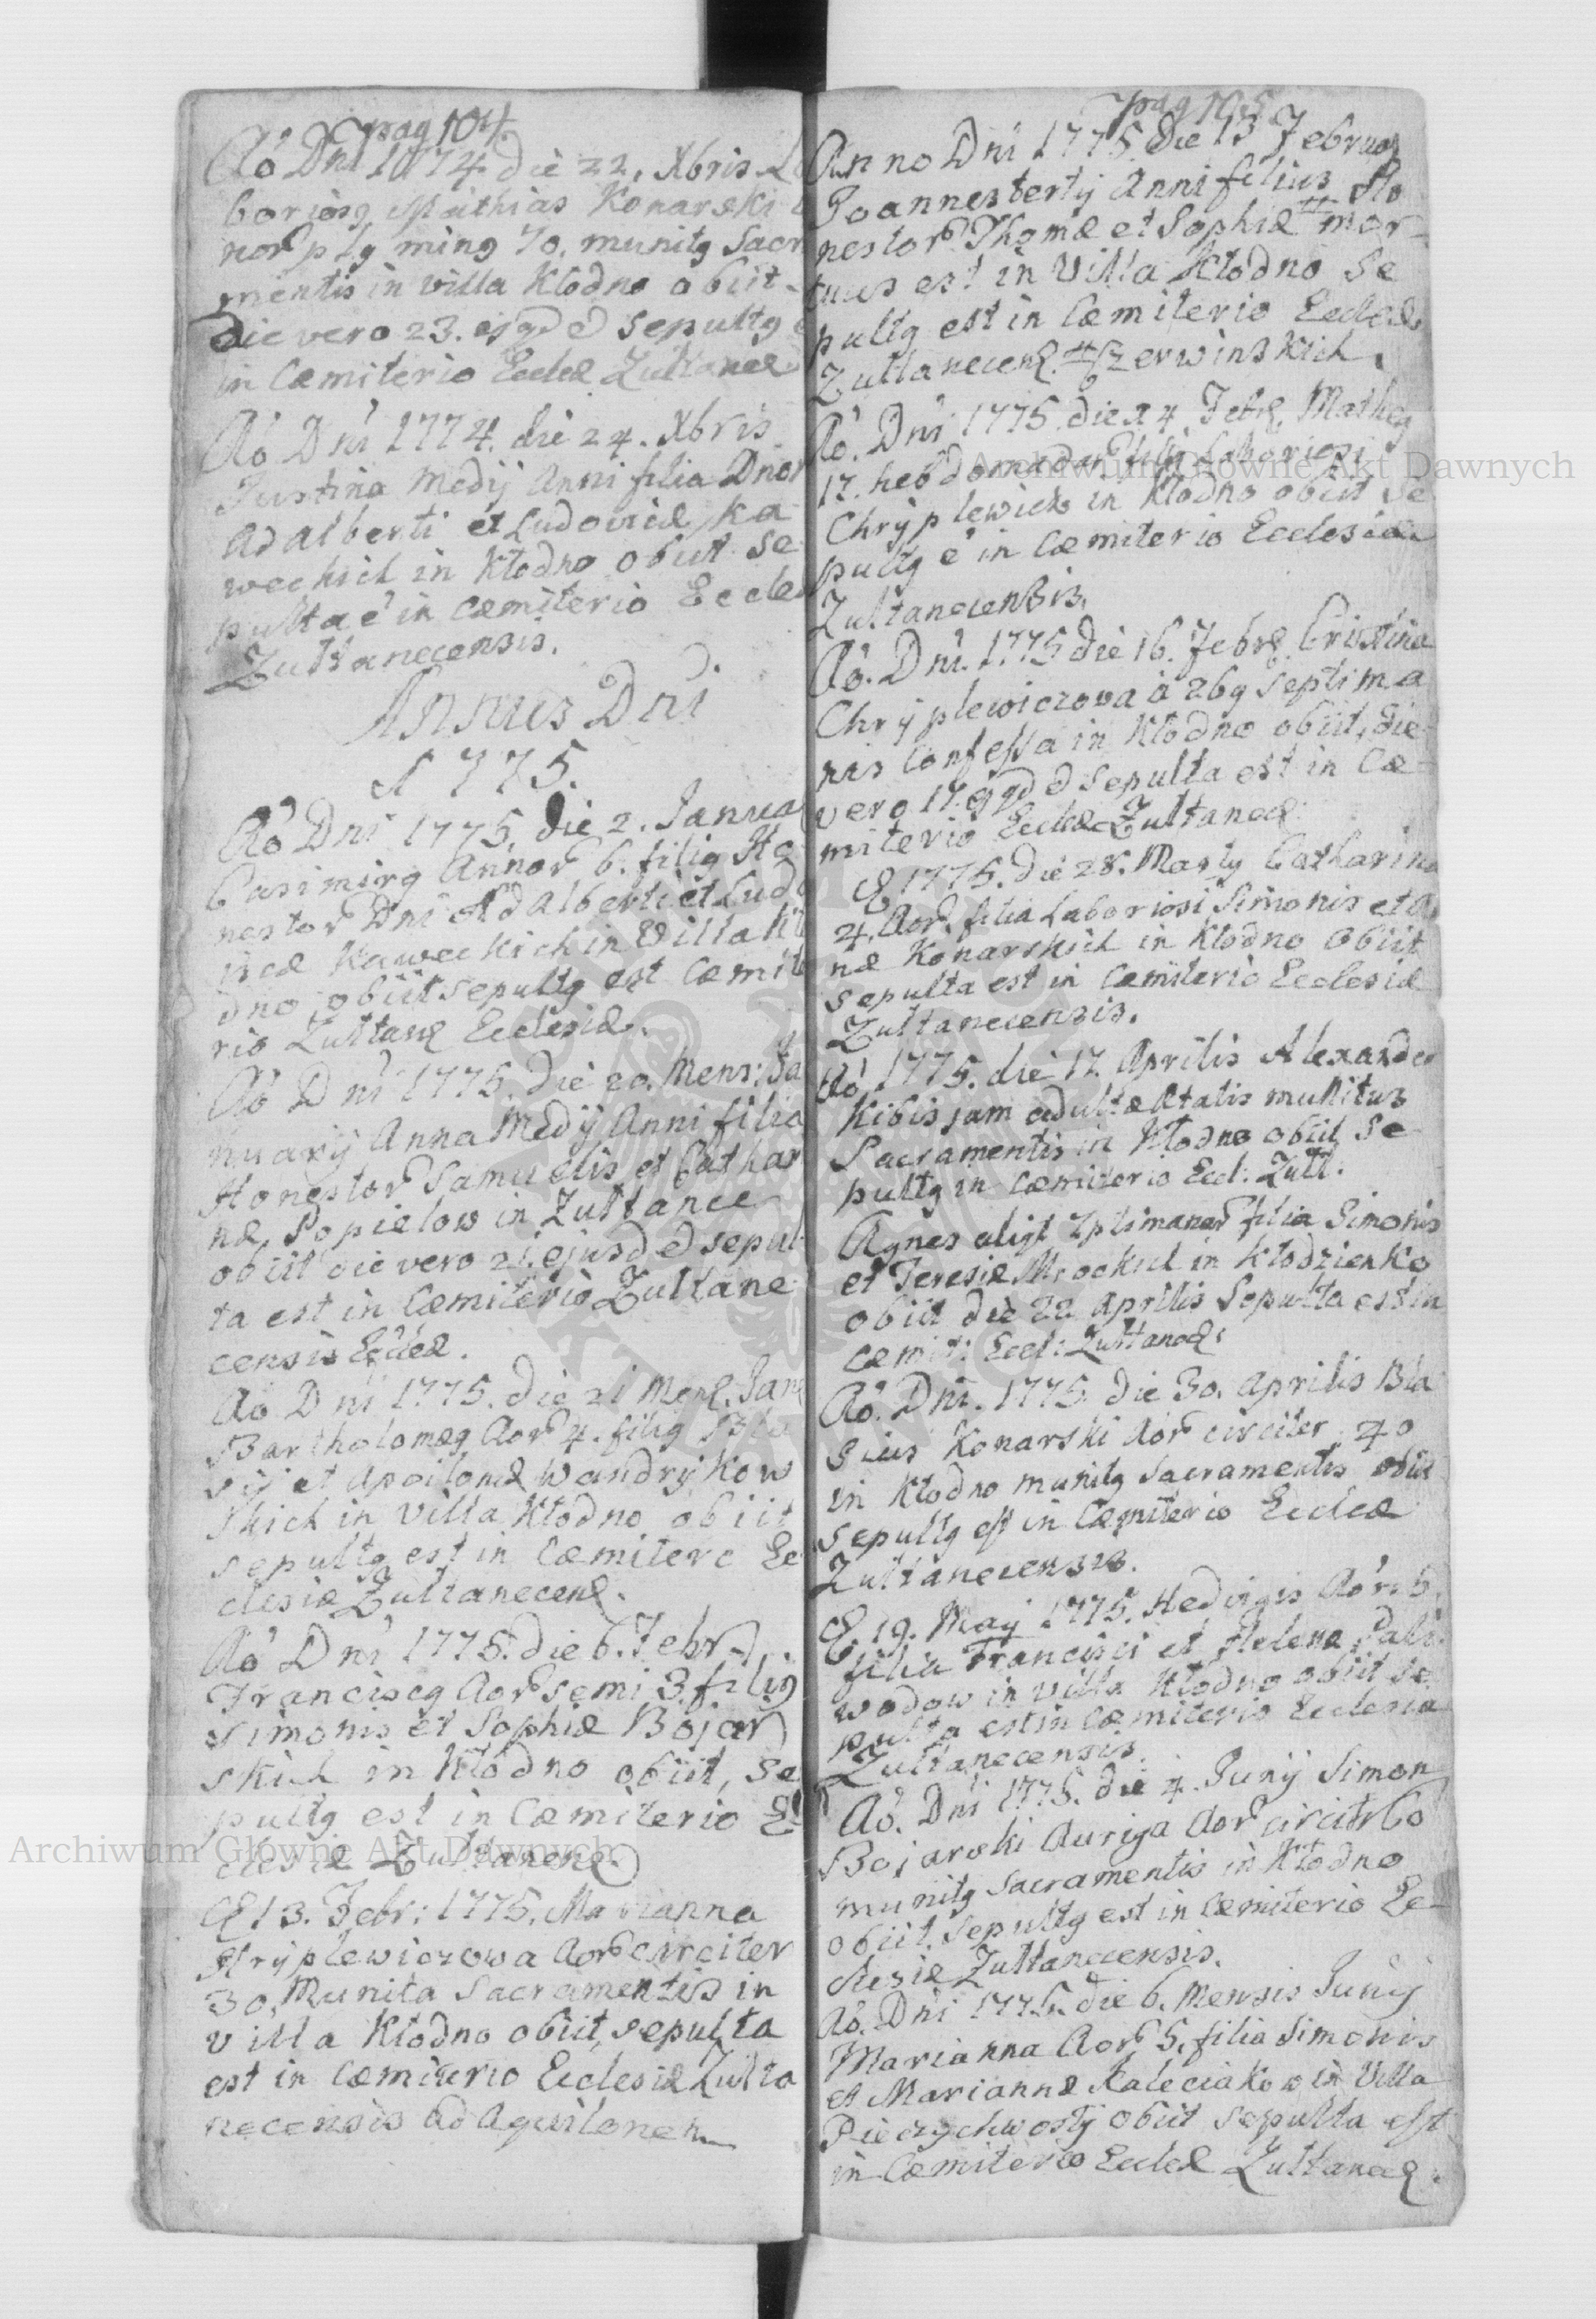 pag 104
Aõ Dni 1774 die 22. Xbris La
boriosg Mathias Konarski
nor plg ming 70. munitg Sacr
mentis in villa Kłodno obiit
die vero 23. ejgd̃ Sepultg
in Cæmiterio Eccleæ Zułtance
Aõ Dni 1774. die 24. Xbris
Justina Medij Anni filia Dnor
Adalberti et Ludovicæ Ka
weckich in Kłodno obiit Se
pulta ẽ in Cæmiterio Eccle
Zułtanecensis.
Annus Dni
1775.
Aõ Dni 1775. die 2. Janua
Casimirg Annor 6. filig Ho
nestor Dni Adalberti et Ludo
vicæ Kaweckich in Villa Kło
dno obiit sepultg est Cæmite
rio Zułtanę Ecclesiæ.
Aõ Dni 1775. die 20. Mens: Ja
nuarij Anna Medij Anni filia
Honestor Samuelis et Cathar
næ Popielow in Zułtance
obiit die vero 21. ejusdẽ sepul
ta est in Cæmiterio Zułtane
censis Eccleæ.
Aõ Dni 1775. die 21 Menę. Janu
Bartholomæg Aor 4. filig Bla
sij et Apolloniæ Wandryków
skich in Villa Kłodno obiit
sepultg est in Cæmiterio Ec
clesiæ Zułtanecenę.
Aõ Dni 1775. die 6. Febr
Franciscg Aor semi 3. filig
Simonis et Sophiæ Bojar
skich in Kłodno obiit, Se
pultg est in Cæmiterio Ec
clesiæ Zułtanenę
Æ 13. Febr: 1775. Marianna
Hryplewiczowa Aor circiter
30. Munita Sacramentis in
villa Kłodno obiit, sepulta
est in Cæmiterio Ecclesiæ Zułta
necensis ad Aquilonem
pag 105
Anno Dni 1775. die 13 Februa
Joannes tertij Anni filius Ho
nestor Thomæ et Sophiæ # mor
tuus est in Villa Kłodno Se
pultg est in Cæmiterio Eccleæ
Zułtanecenę. # Czerwinskich.
Aõ. Dni 1775 die 14. Febrę. Matheg
17. hebdomadar filig Laboriosi
Chryplewicz in Kłodno obiit Se
pultg ẽ in Cæmiterio Ecclesiæ
Zułtanecensis.
Aõ. Dni. 1775 die 16. Febrę. Cristina
Chryplewiczowa à 26g Septima
nis Confessa in Kłodno obiit, die
vero 17. ejgdẽ Sepulta est in Cæ
miterio Eccleæ Zułtanecę
Æ 1775. die 28. Martij Catharina
4. Aor. filia Laboriosi Simonis et A
næ Konarskich in Kłodno Obiit
Sepulta est in Cæmiterio Ecclesiæ
Zułtanecensis.
Aõ 1775. die 17. Aprilis Alexander
Kibis jam adultæ Ætatis munitus
Sacramentis in Kłodno obiit Se
pultg in Cæmiterio Eccl: Zułt.
Agnes aligt 7ptimanar filia Simonis
et Teresiæ Mrockich in Kłodzienko
obiit die 22 Aprilis Sepulta est in
Cæmit: Eccl: Zułtanecę.
Aõ. Dni. 1775. die 30. Aprilis Bla
sius Konarski Aor circiter 40
in Kłodno munitg Sacramentis obiit
Sepultg est in Cæmiterio Eccleæ
Zułtanecensis.
Æ. 19. Maij 1775. Hedvigis Aõr. 5.
filia Francisci et Helenæ Pali
wodow in villa Kłodno obiit Se
pulta est in Cæmiterio Ecclesiæ
Zułtanecensis.
Aõ. Dni 1775. die 4. Junij Simon
Bojarski Auriga Aor circitr 60
munitg Sacramentis in Kłodno
obiit, Sepultg est in Cæmiterio Ec
clesiæ Zułtanecensis.
Aõ. Dni 1775. die 6. Mensis Junij
Marianna Aor 5. filia Simonis
et Mariannæ Kaleciakow in Villa
Pieczychwosty obiit sepulta est
in Cæmiterio Eccleæ Zułtanecę.
Archiwum Główne Akt Dawnych
Archiwum Główne Akt Dawnych